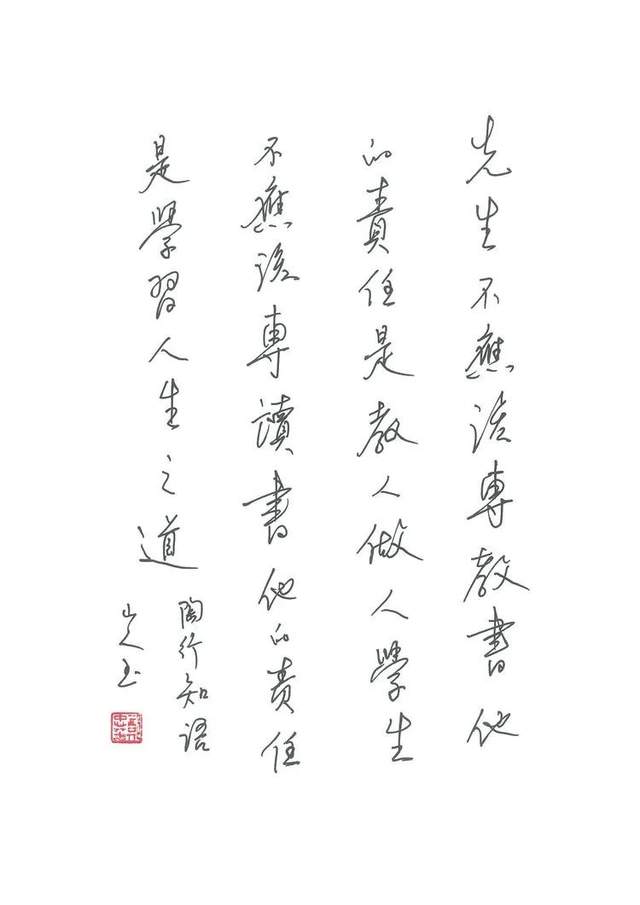 先生不應該專教書他
的責任是教人做人學生
不應該專讀書他的責任
是學習人生之道
陶行知语